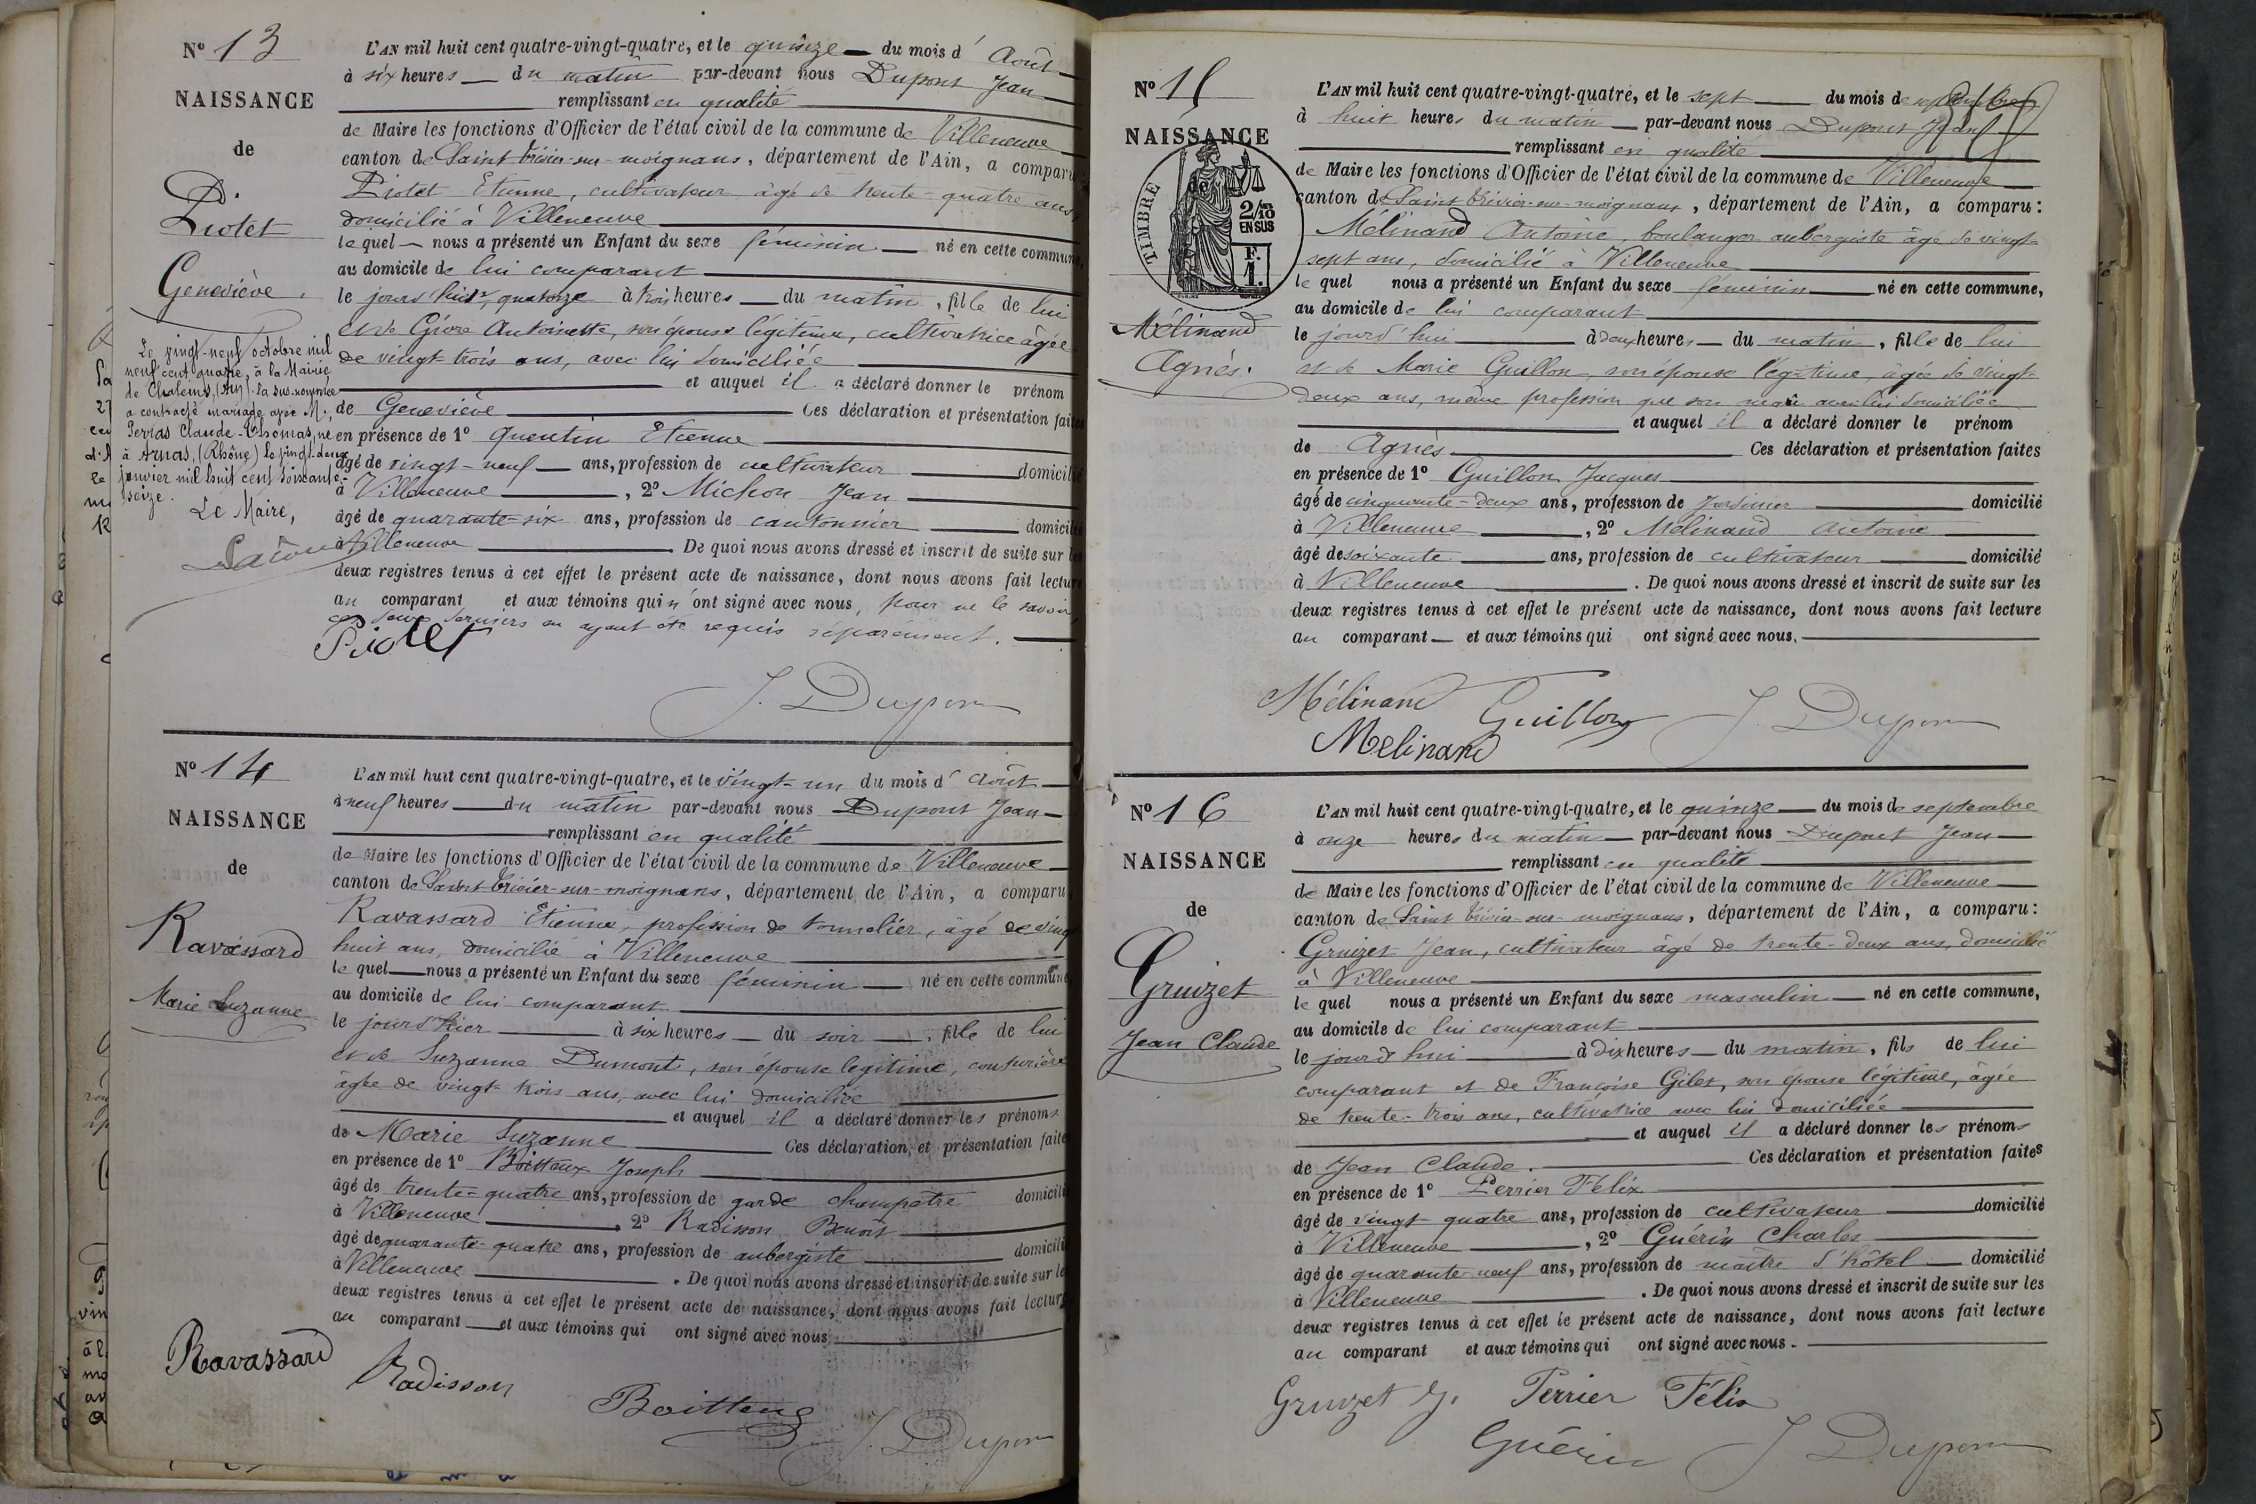 N° 13
NAISSANCE
de
Piotet
Geneviève.
Le vingt-neuf octobre mil
neuf cent quatre, à la Mairie
de Chaleins, (Ain) la sus-nommée
a contracté mariage avec M.
Perras Claude-Thomas, né
à Arnas, (Rhône) le vingt-deux
janvier mil huit cent soixante-
seize.
Le Maire,
L'AN mil huit cent quatre-vingt-quatre, et le quinze du mois d' Août
à six heures du matin par-devant nous Dupont Jean
remplissant en qualité
de Maire les fonctions d'Officier de l'état civil de la commune de Villeneuve
canton de Saint Trivier-sur-moignans, département de l'Ain, a comparu
Piotet Etienne, cultivateur âgé de trente-quatre ans
domicilié à Villeneuve
lequel nous a présenté un Enfant du sexe féminin né en cette commune,
au domicile de lui comparant
le jour d'hier, quatorze à trois heures du matin, fille de lui
et de Givre Antoinette, son épouse légitime, cultivatrice âgée
de vingt-trois ans, avec lui domiciliée
et auquel il a déclaré donner le prénom
de Geneviève Ces déclaration et présentation faites
en présence de 1° Quentin Etienne
âgé de vingt-neuf ans, profession de cultivateur domicilié
à Villeneuve, 2° Michon Jean
âgé de quarante-six ans, profession de cantonnier domicilié
à Villeneuve De quoi nous avons dressé et inscrit de suite sur les
deux registres tenus à cet effet le présent acte de naissance, dont nous avons fait lecture
au comparant et aux témoins qui n'ont signé avec nous, pour ne le savoir
ces deux derniers en ayant été requis séparément.
Piotet
J. Dupont
N° 14
NAISSANCE
de
Ravassard
Marie Suzanne
L'AN mil huit cent quatre-vingt-quatre, et le vingt-un du mois d' Août
à neuf heures du matin par-devant nous Dupont Jean
remplissant en qualité
de Maire les fonctions d'Officier de l'état civil de la commune de Villeneuve
canton de Saint Trivier-sur-moignans, département de l'Ain, a comparu
Ravassard Etienne, profession de tonnelier, âgé de vingt
huit ans, domicilié à Villeneuve
lequel nous a présenté un Enfant du sexe féminin né en cette commune
au domicile de lui comparant
le jour d'hier à six heures du soir, fille de lui
et de Suzanne Dumont, son épouse légitime, couturière
âgée de vingt trois ans, avec lui domiciliée
et auquel il a déclaré donner les prénoms
de Marie Suzanne Ces déclaration, et présentation faites
en présence de 1° Boitteux Joseph
âgé de trente-quatre ans, profession de garde champêtre domicilié
à Villeneuve, 2° Radisson Benoît
âgé de quarante-quatre ans, profession de aubergiste domicilié
à Villeneuve. De quoi nous avons dressé et inscrit de suite sur les
deux registres tenus à cet effet le présent acte de naissance, dont nous avons fait lecture
au comparant et aux témoins qui ont signé avec nous
Ravassard
Radisson
Boitteux
J. Dupont
N° 15
NAISSANCE
de
TIMBRE
2/10 EN SUS
F. 1.
Mélinand
Agnès.
L'AN mil huit cent quatre-vingt-quatre, et le sept du mois de septembre
à huit heures du matin par-devant nous Dupont Jean
remplissant en qualité
de Maire les fonctions d'Officier de l'état civil de la commune de Villeneuve
canton de Saint Trivier-sur-moignans, département de l'Ain, a comparu:
Mélinand Antoine, boulanger aubergiste âgé de vingt-
sept ans, domicilié à Villeneuve
lequel nous a présenté un Enfant du sexe féminin né en cette commune,
au domicile de lui comparant
le jour d'hui à deux heures du matin, fille de lui
et de Marie Guillon, son épouse légitime, âgée de vingt-
deux ans, même profession que son mari avec lui domiciliée
et auquel il a déclaré donner le prénom
de Agnès Ces déclaration et présentation faites
en présence de 1° Guillon Jacques
âgé de cinquante-deux ans, profession de jardinier domicilié
à Villeneuve, 2° Mélinand Antoine
âgé de soixante ans, profession de cultivateur domicilié
à Villeneuve. De quoi nous avons dressé et inscrit de suite sur les
deux registres tenus à cet effet le présent acte de naissance, dont nous avons fait lecture
au comparant et aux témoins qui ont signé avec nous.
Mélinand
Guillon
J. Dupont
Melinand
N° 16
NAISSANCE
de
Gruizet
Jean Claude
L'AN mil huit cent quatre-vingt-quatre, et le quinze du mois de septembre
à onze heures du matin par-devant nous Dupont Jean
remplissant en qualité
de Maire les fonctions d'Officier de l'état civil de la commune de Villeneuve
canton de Saint Trivier-sur-moignans, département de l'Ain, a comparu:
Gruizet Jean, cultivateur âgé de trente-deux ans, domicilié
à Villeneuve
lequel nous a présenté un Enfant du sexe masculin né en cette commune,
au domicile de lui comparant
le jour d'hui à dix heures du matin, fils de lui
comparant et de Françoise Gilet, son épouse légitime, âgée
de trente-trois ans, cultivatrice avec lui domiciliée
et auquel il a déclaré donner les prénoms
de Jean Claude. Ces déclaration et présentation faites
en présence de 1° Perrier Félix
âgé de vingt quatre ans, profession de cultivateur domicilié
à Villeneuve, 2° Guérin Charles
âgé de quarante-neuf ans, profession de maître d'hôtel domicilié
à Villeneuve. De quoi nous avons dressé et inscrit de suite sur les
deux registres tenus à cet effet le présent acte de naissance, dont nous avons fait lecture
au comparant et aux témoins qui ont signé avec nous.
Gruizet J. Perrier Félix
Guérin J Dupont